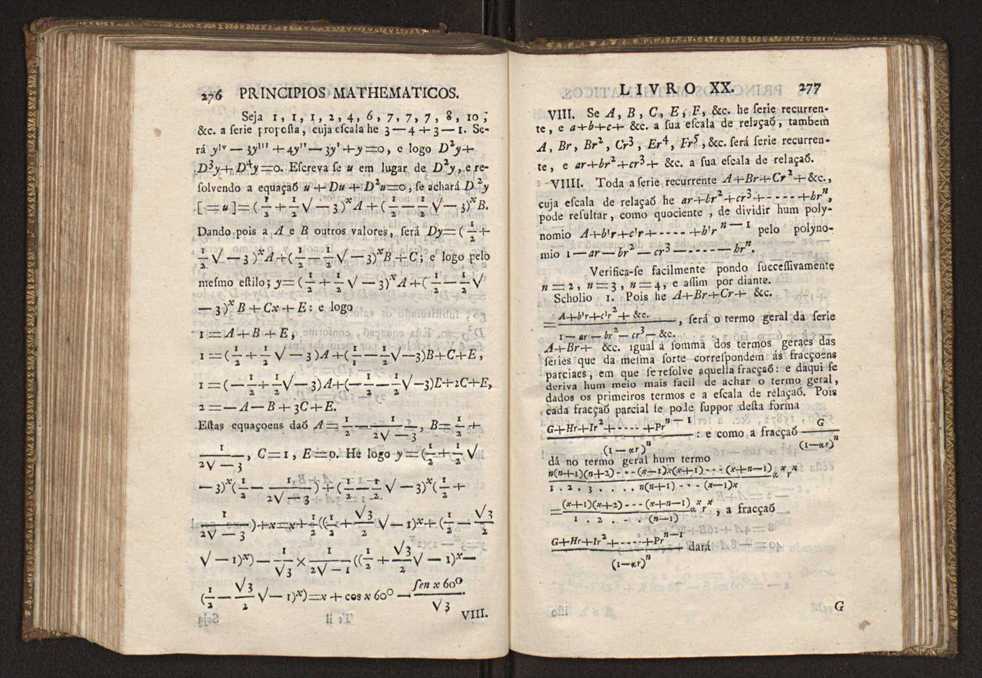 276 PRINCIPIOS MATHEMATICOS.
Seja 1, 1, 1, 2, 4, 6, 7, 7, 7, 8, 10;
&c. a ſerie propoſta, cuja eſcala he 3—4+3—1. Se-
rá yⁱᵛ — 3yᴵᴵᴵ + 4yᴵᴵ — 3yᴵ + y = 0, e logo D²y +
D³y + D⁴y = 0. Eſcreva ſe u em lugar de D²y, e re-
ſolvendo a equaçaõ u + Du + D²u = 0, ſe achará D²y
[ = u ] = ( 1/2 + 1/2 √ — 3 )ˣ A + ( 1/2 — 1/2 √ — 3 )ˣ B.
Dando pois a A e B outros valores, ſerá Dy = ( 1/2 +
1/2 √ — 3 )ˣ A + ( 1/2 — 1/2 √ — 3 )ˣ B + C; e logo pelo
meſmo eſtilo; y = ( 1/2 + 1/2 √ — 3 )ˣ A + ( 1/2 — 1/2 √
— 3 )ˣ B + Cx + E: e logo
1 = A + B + E,
1 = ( 1/2 + 1/2 √ — 3 ) A + ( 1/2 — 1/2 √ — 3 ) B + C + E,
1 = ( — 1/2 + 1/2 √ — 3 ) A + ( — 1/2 — 1/2 √ — 3 ) B + 2C + E,
2 = — A — B + 3C + E.
Eſtas equaçoens daõ A = 1/2 — 1/(2√ — 3), B = 1/2 +
1/(2√ — 3), C = 1, E = 0. He logo y = ( 1/2 + 1/2 √
— 3 )ˣ ( 1/2 — 1/(2√ — 3) ) + ( 1/2 — 1/2 √ — 3 )ˣ ( 1/2 +
1/(2√ — 3) ) + x = x + 1/2 (( 1/2 + √3/2 √ — 1 )ˣ + ( 1/2 — √3/2
√ — 1 )ˣ ) — 1/√3 × 1/(2√ — 1) (( 1/2 + √3/2 √ — 1 )ˣ —
( 1/2 — √3/2 √ — 1 )ˣ ) = x + cos x 60° — ſen x 60°/√3
VIII.
LIVRO XX. 277
VIII. Se A, B, C, E, F, &c. he ſerie recurren-
te, e a+b+c+ &c. a ſua eſcala de relaçaõ, tambem
A, Br, Br², Cr³, Er⁴, Fr⁵, &c. ſerá ſerie recurren-
te, e ar+br²+cr³+ &c. a ſua eſcala de relaçaõ.
VIIII. Toda a ſerie recurrente A+Br+Cr²+ &c.,
cuja eſcala de relaçaõ he ar+br²+cr³+-----+brⁿ,
póde reſultar, como quociente, de dividir hum poly-
nomio A+bᴵr+cᴵr+-----+bᴵrⁿ⁻¹ pelo polyno-
mio 1—ar—br²—cr³—------brⁿ.
Verifica-ſe facilmente pondo ſucceſſivamente
n=2, n=3, n=4, e aſſim por diante.
Scholio 1. Pois he A+Br+Cr+ &c.
= (A+bᴵr+cᴵr²+ &c.)/(1—ar—br²—cr³— &c.), ſerá o termo geral da ſerie
A+Br+ &c. igual a ſomma dos termos geraes das
ſeries que da meſma ſorte correſpondem ás fracçoens
parciaes, em que ſe reſolve aquella fracçaõ: e daqui ſe
deriva hum meio mais facil de achar o termo geral,
dados os primeiros termos e a eſcala de relaçaõ. Pois
cada fracçaõ parcial ſe póde ſuppor deſta forma
(G+Hr+Ir²+----+Prⁿ⁻¹)/(1—αr)ⁿ : e como a fracçaõ G/(1—αr)ⁿ
dá no termo geral hum termo
(n(n+1)(n+2)---(x—1)x(x+1)---(x+n—1))/(1.2.3....n(n+1)---(x—1)x) αˣrˣ
= ((x+1)(x+2)---(x+n—1))/(1.2.-.-(n—1)) αˣrˣ, a fracçaõ
(G+Hr+Ir²+----+Prⁿ⁻¹)/(1—αr)ⁿ dará
G